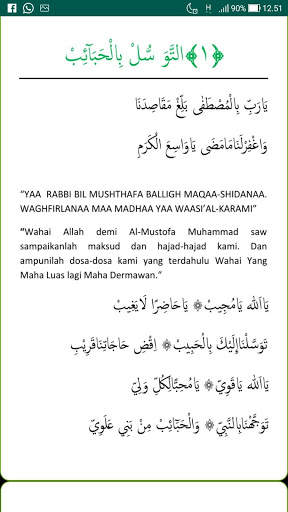 H 90% 12.51
﴿١﴾التَّوَ سُّلْ بِالْحَبَآئِبْ
يَارَبِّ بِالْمُصْطَفٰى بَلِّغْ مَقَاصِدَنَا
وَاغْفِرْلَنَامَامَضٰى يَاوَاسِعَ الْكَرَمِ
“YAA RABBI BIL MUSHTHAFA BALLIGH MAQAA-SHIDANAA.
WAGHFIRLANAA MAA MADHAA YAA WAASI’AL-KARAMI”
“Wahai Allah demi Al-Mustofa Muhammad saw
sampaikanlah maksud dan hajad-hajad kami. Dan
ampunilah dosa-dosa kami yang terdahulu Wahai Yang
Maha Luas lagi Maha Dermawan.”
يَااَلله يَامُجِيْبْ ۞ يَاحَاضِرًا لَايَغِيْبْ
تَوَسَّلْنَاإِلَيْكَ بِالْحَبِيْبْ ۞ اِقْضِ حَاجَاتِنَاقَرِيْبْ
يَااَلله يَاقَوِيّْ ۞ يَامُحِبًّالِكُلِّ وَلِيّْ
تَوَجَّهْنَابِالنَّبِيّْ ۞ وَالْحَبَآئِبْ مِنْ بَنِي عَلَوِيّْ